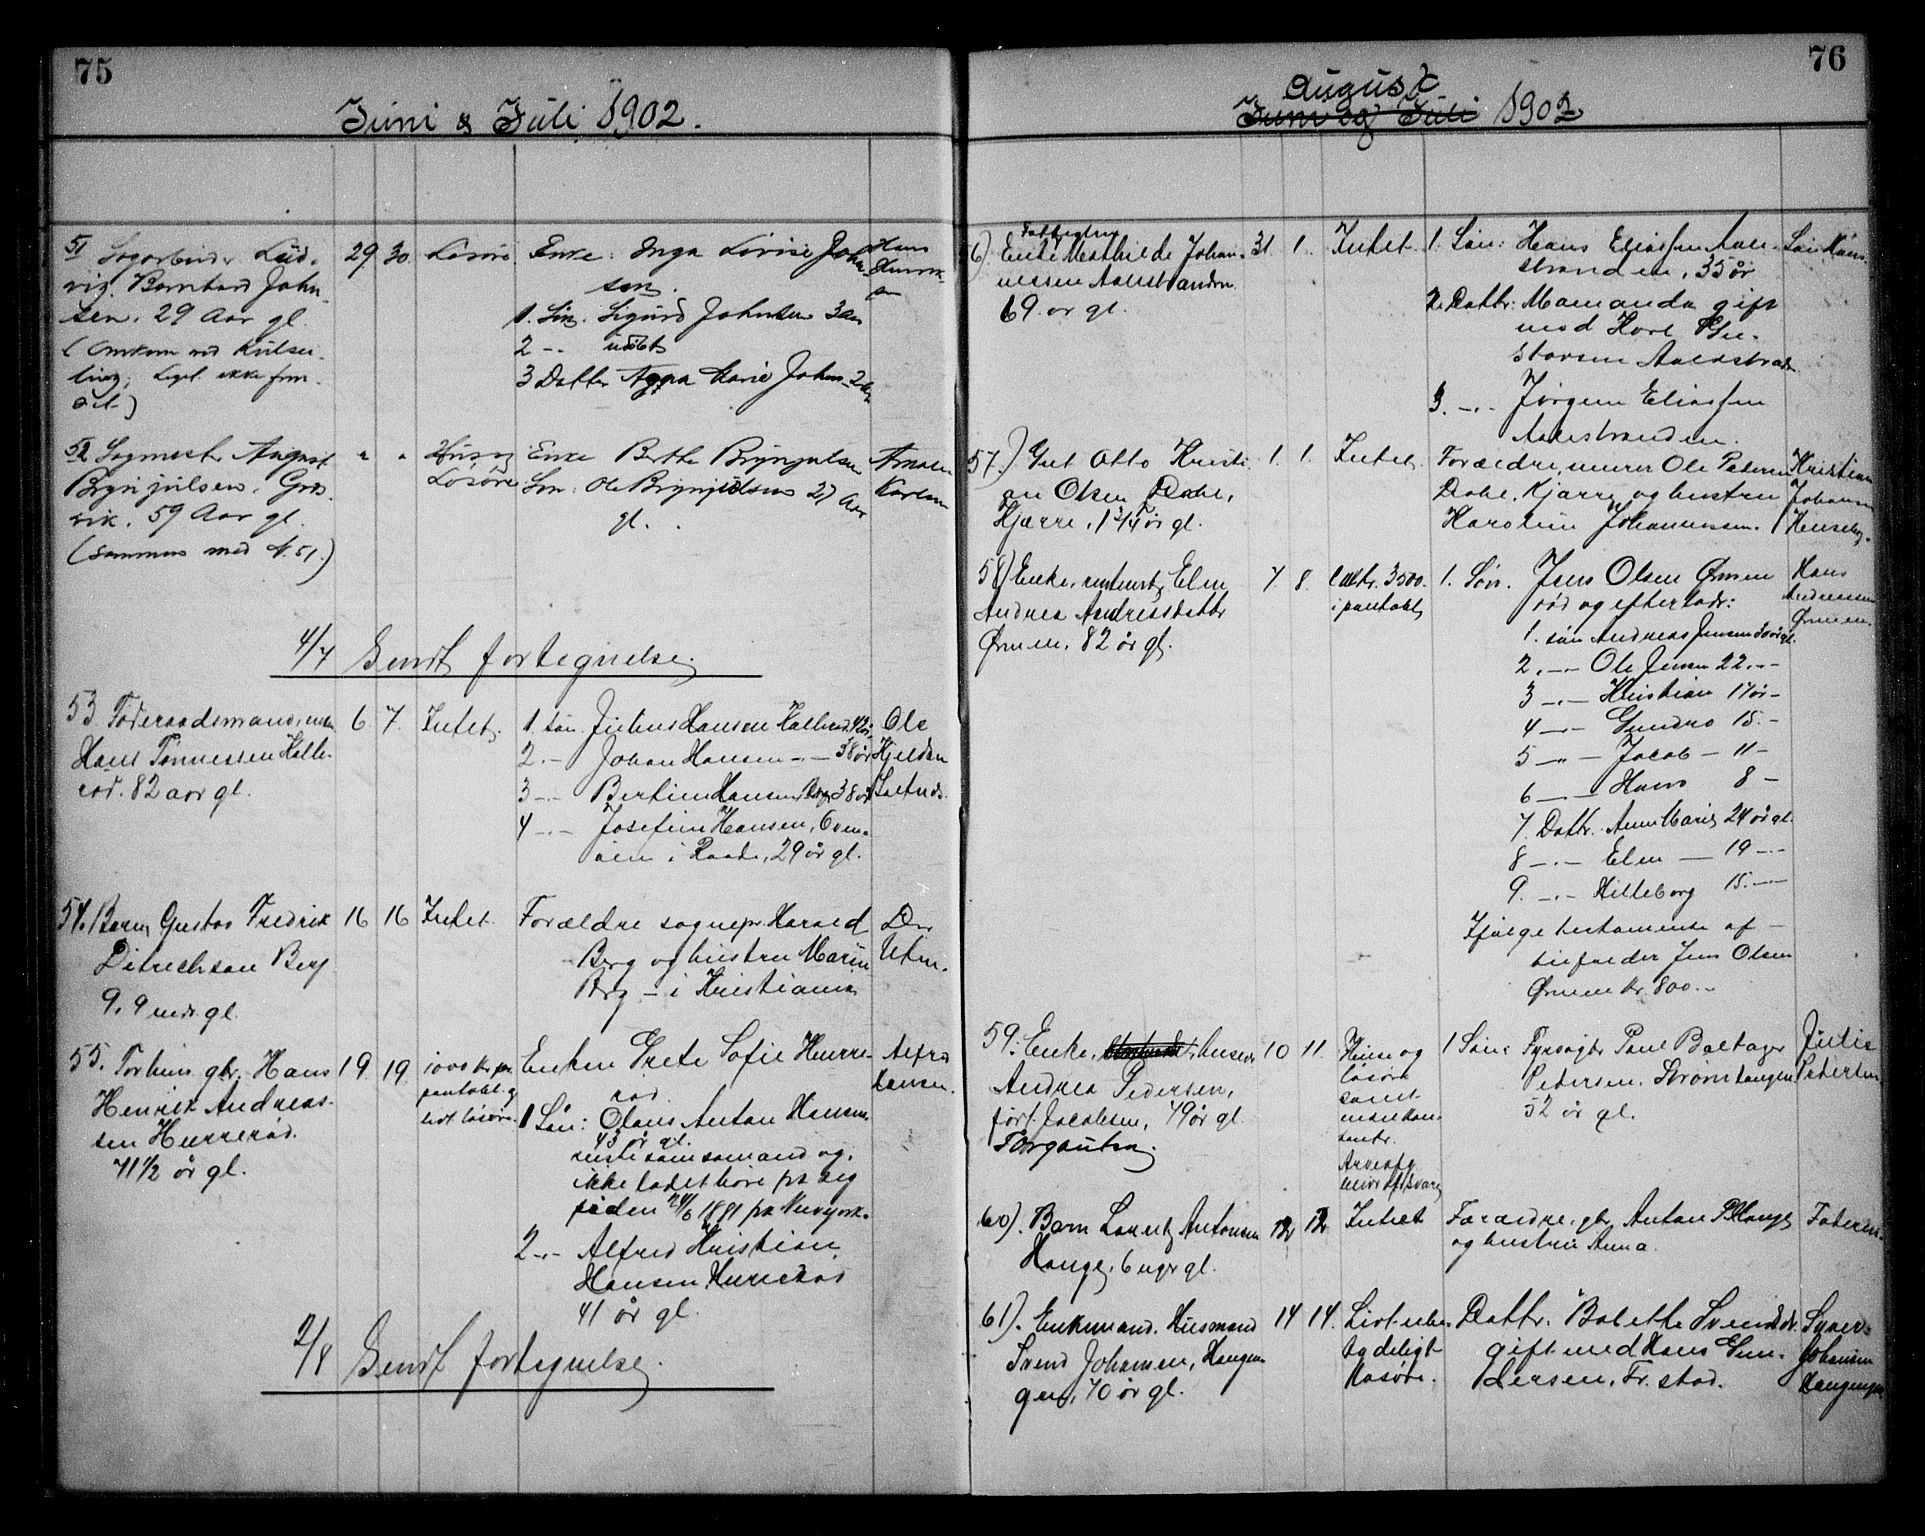 75
Juni & Juli 1902.
51 Sagarbeider Lud-
vig Bernhard John-
sen. 29 Aar gl.
(Omkom ved Kulsei-
ling; Liget ikke fun-
det)
29 30 Løsøre
Enke: Inga Lovise John-
sen.
1. Søn. Sigurd Johnsen 3 aar
2 -"- udøbt
3 Datter Agna Marie Johns. 2 aar
Hans
52 Sagmester August
Brynjulsen, Græs-
vik. 59 Aar gl.
(Sammen med N. 51.)
" " Hus og
Løsøre
Enke Berthe Brynjulsen
Søn: Ole Brynjulsen 27 Aar
gl.
Arnold
Karlsen
4/7 Sendt fortegnelse.
53 Føderaadsmand, enkem.
Hans Tønnessen Halle-
rød. 82 aar gl.
6 7. Intet.
1. søn. Julius Hansen Hallerød 42 år
2. -"- Johan Hansen -"- 38 år
3 -"- Bertine Hansen, 38 år
4 -"- Josefine Hansen,
i Raade, 29 år gl.
Ole
Kjeldsen
Saltnes.
54. Barn Gustav Fredrik
Ditrichson Berg
9. 9 mdr gl.
16 16 Intet.
Forældre sognepr Harald
Berg og hustru Marie
Berg – i Kristiania
55. Forhen. gbr. Hans
Henrik Andreas-
sen Hurrerød.
71 1/2 år gl.
19. 19. 1000 kr. pr.
pantobl. og
lidt løsøre.
Enken Grete Sofie Hurre-
rød.
1 Søn: Olaus Anton Hansen
43 år gl.
reiste som sømand og
ikke ladet høre fra sig
siden 24/6 1891 fra Newyork.
2 -"- Alfred Kristian
Hansen Hurrerød
41 år gl.
Alfred
Hansen.
2/8 Sendt fortegnelse.
76
August
Juni og Juli 1902
6) Fattiglem
Enke Mathilde Johan-
nessen Aalestranden
69. år gl.
31. 1. Intet.
1. Søn: Hans Eliassen Aale-
stranden, 35 år
2. Dattr: Mamanda gift
med Karl
Aalestranden
3. -"- Jørgen Eliassen
Aalestranden.
Søn Hans
57.) Gut Otto Kristi-
an Olsen Dale,
Kjærre, 1 3/4 år gl.
1. 1. Intet.
Forældre, murer Ole Petersen
Dale, Kjærre og hustru
Karoline Johannessen.
Kristian
Johansen
58) Enke, Elen
Andrea Andreasdattr
Ørmen, 82 år gl.
7 8. kr. 3500
i pantobl.
1. Søn. Jens Olsen Ørmen
død og efterlader:
1. søn Andreas Jensen 30 år gl.
2. -"- Ole Jensen 22. -"-
3 -"- Kristian 17 år -
4 -"- Gundro 15. -
5 -"- Jacob – 11 -
6 -"- Hans 8 -
7. Dattr. Anne Marie, 24 år gl.
8 -"- Elen — 19 -"-
9. -"- Hilleborg 15. -"-
Ifølge testamente af –
tilfalder Jens Olsen
Ørmen kr. 800.-
Hans
Andreassen
Ørmen.
59. Enke, huseier
Andrea Pedersen,
født Jacobsen, 79 år gl.
10 11. Huse og
løsøre
samt
1 Søn: Fyrvogter Paul Baltazer
Petersen. Strømtangen
52 år gl.
Julie
Petersen
60). Barn Laurits Antonsen
Hauge, 6 uger gl.
12 12 Intet
Forældre, gbr. Anton P. Hauge
og hustru Anna.
Faderen.
61). Enkemand. Husmand
Svend Johansen, Haugen-
gen, 70 år gl.
14 14.
Løsøre.
Dattr. Bolette Svendsdr.
gift med Hans Gun-
dersen, Fr.stad.
Johansen